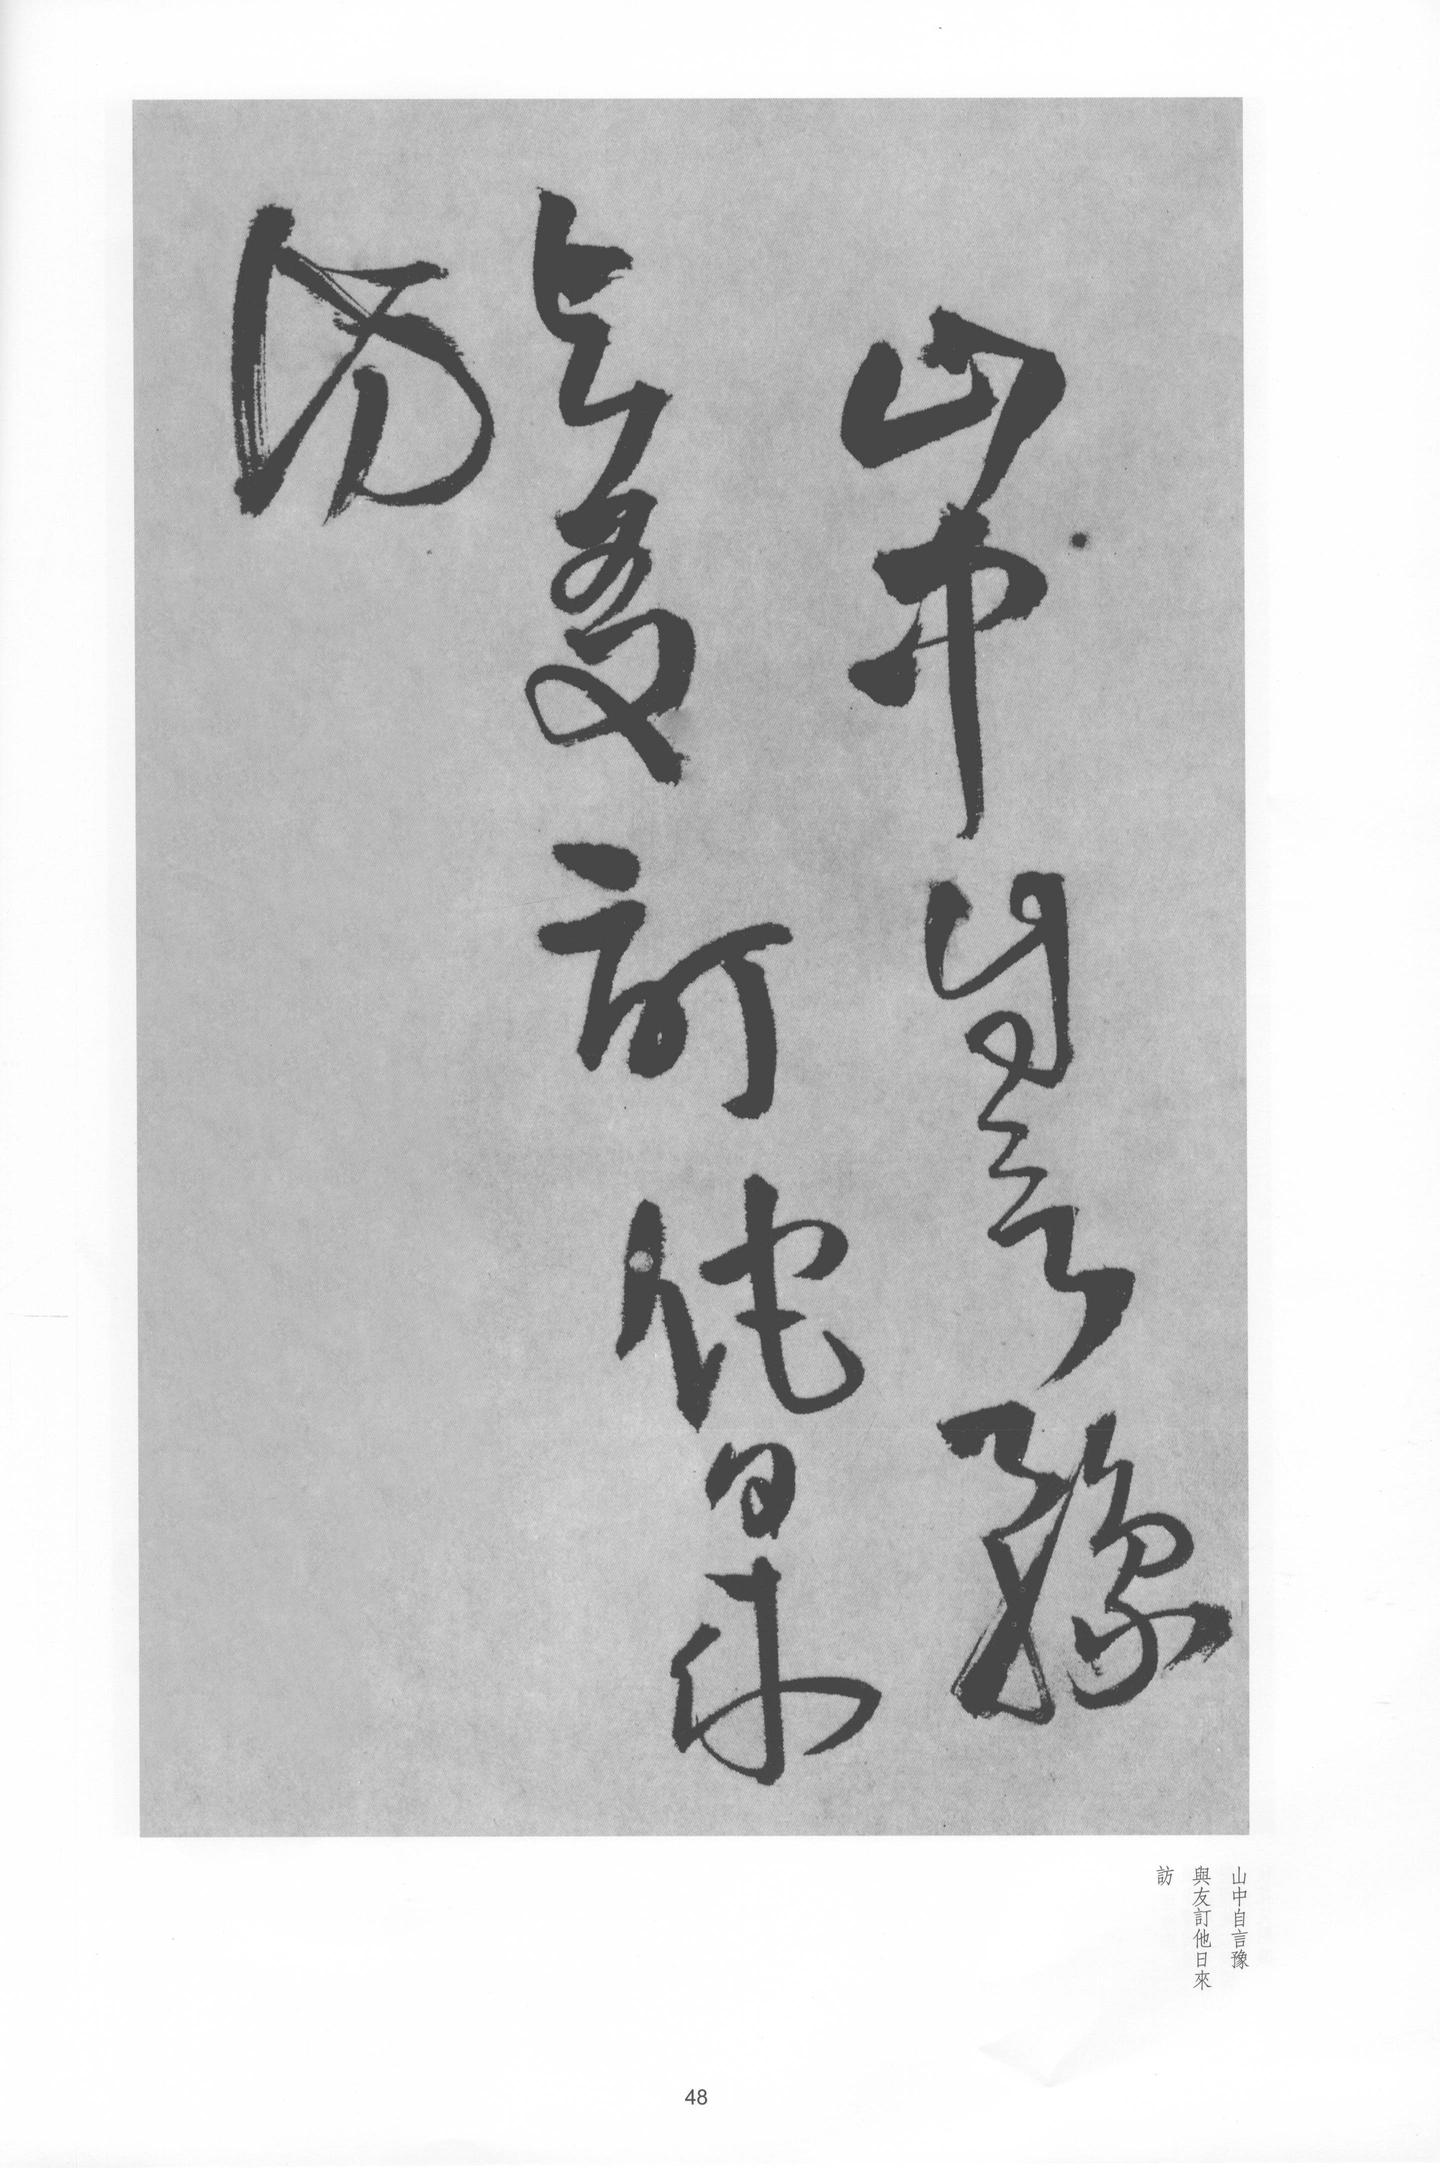 山中自言豫
與友訂他日來
訪
山中自言豫
與友訂他日來
訪
48